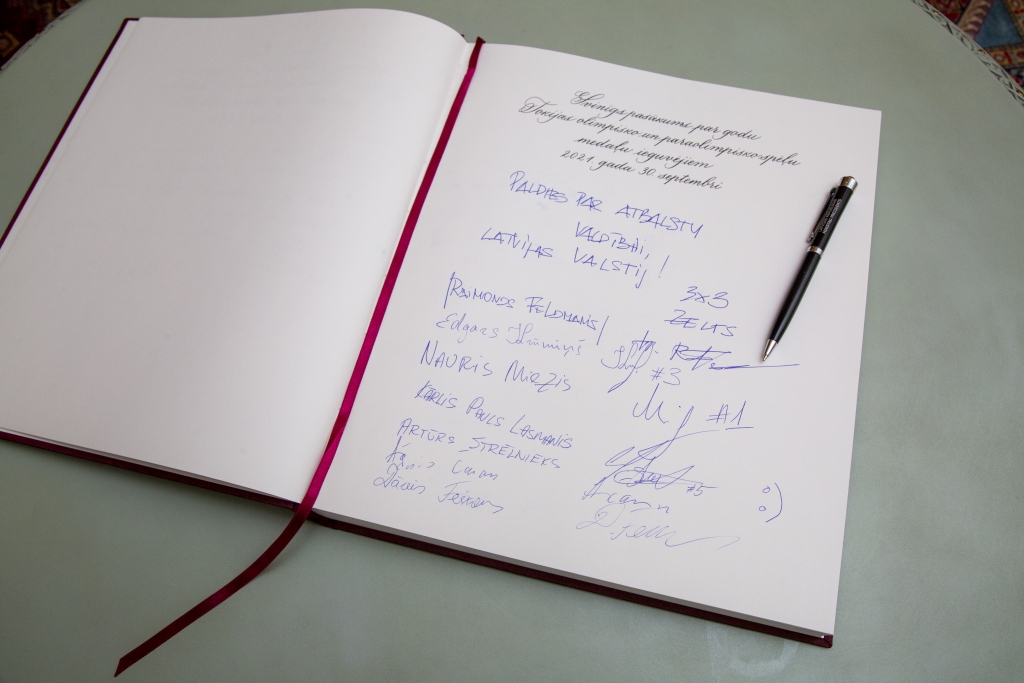 Svinīgs pasākums par godu
Tokijas olimpisko un paraolimpisko spēļu
medaļu ieguvējiem
2021. gada 30. septembrī
PALDIES PAR ATBALSTU
VALDĪBAI,
LATVIJAS VALSTIJ!
3x3
ZELTS
RAIMONDS FELDMANIS
Edgars Krūmiņš
#3
NAURIS MIEZIS
#1
KĀRLIS PAULS LASMANIS
ARTŪRS STRĒLNIEKS
#5
:)
Dāvis